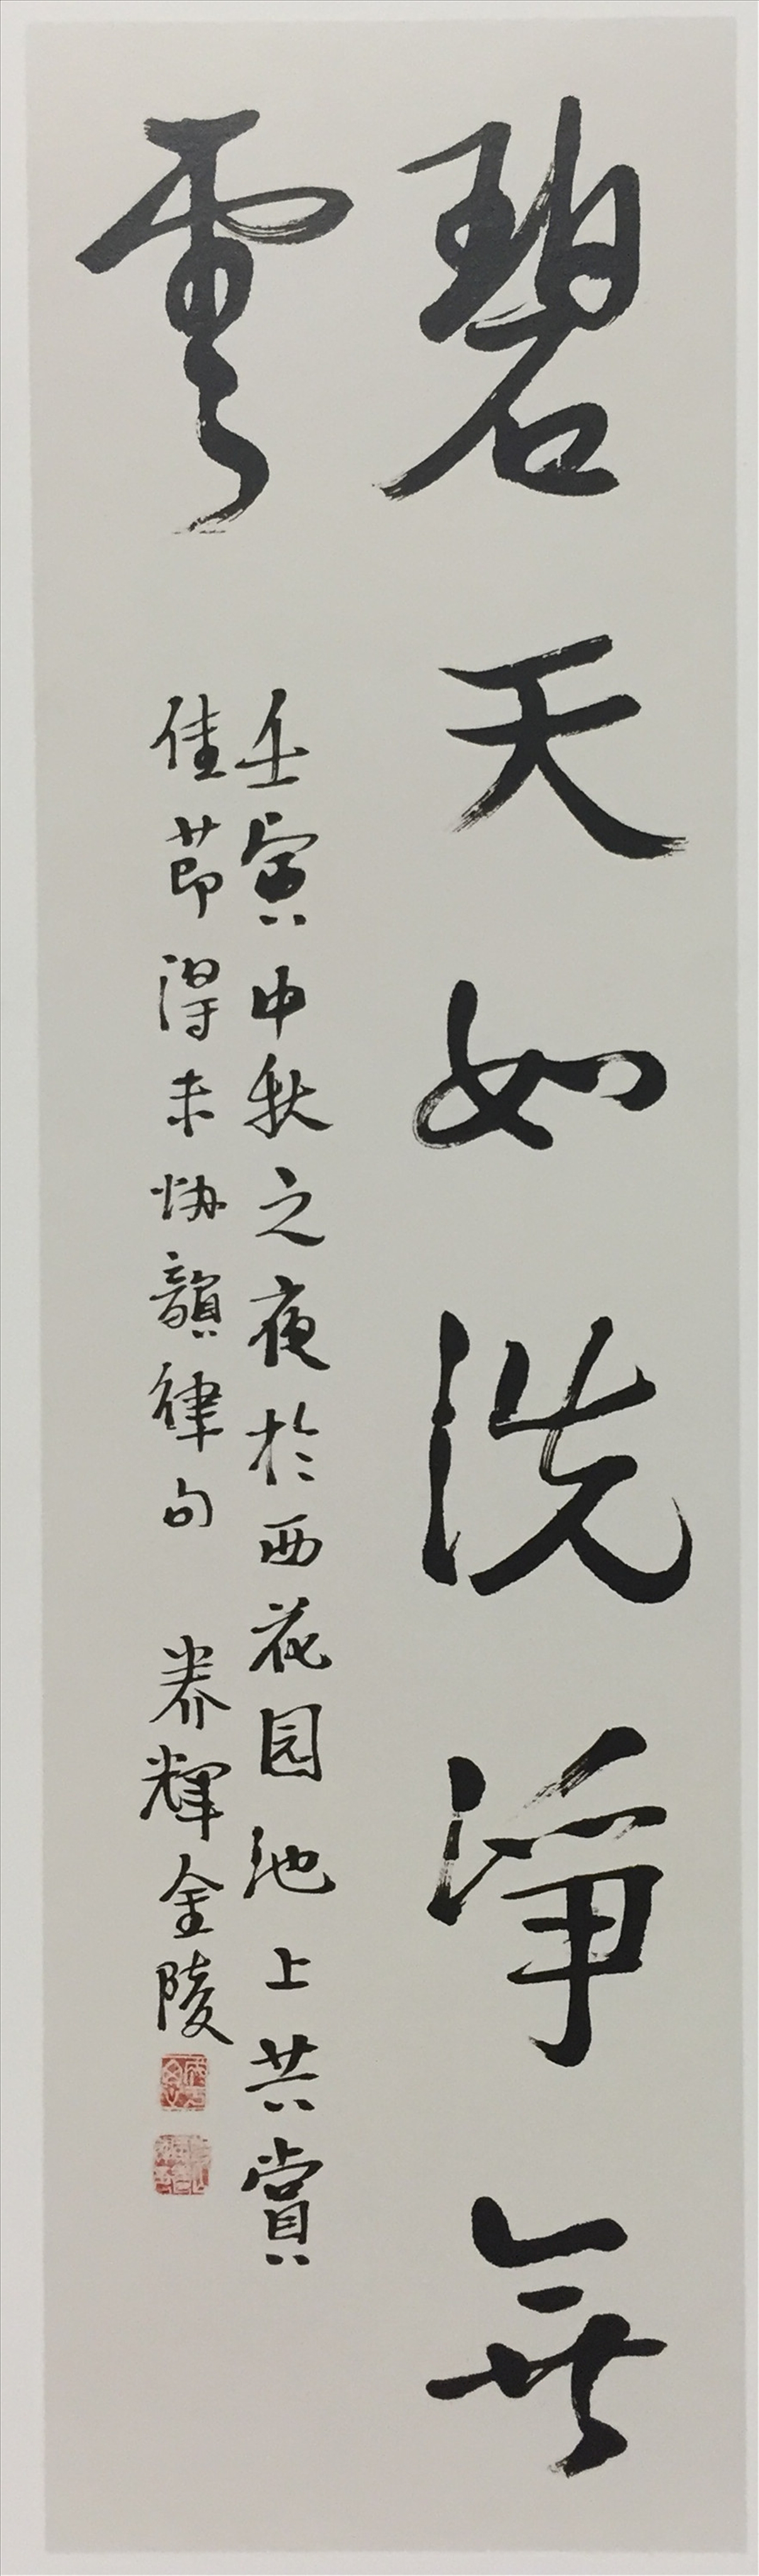 碧天如洗淨無
雲
壬寅中秋之夜於西花园池上共賞
佳節得未協韻律句 養輝金陵